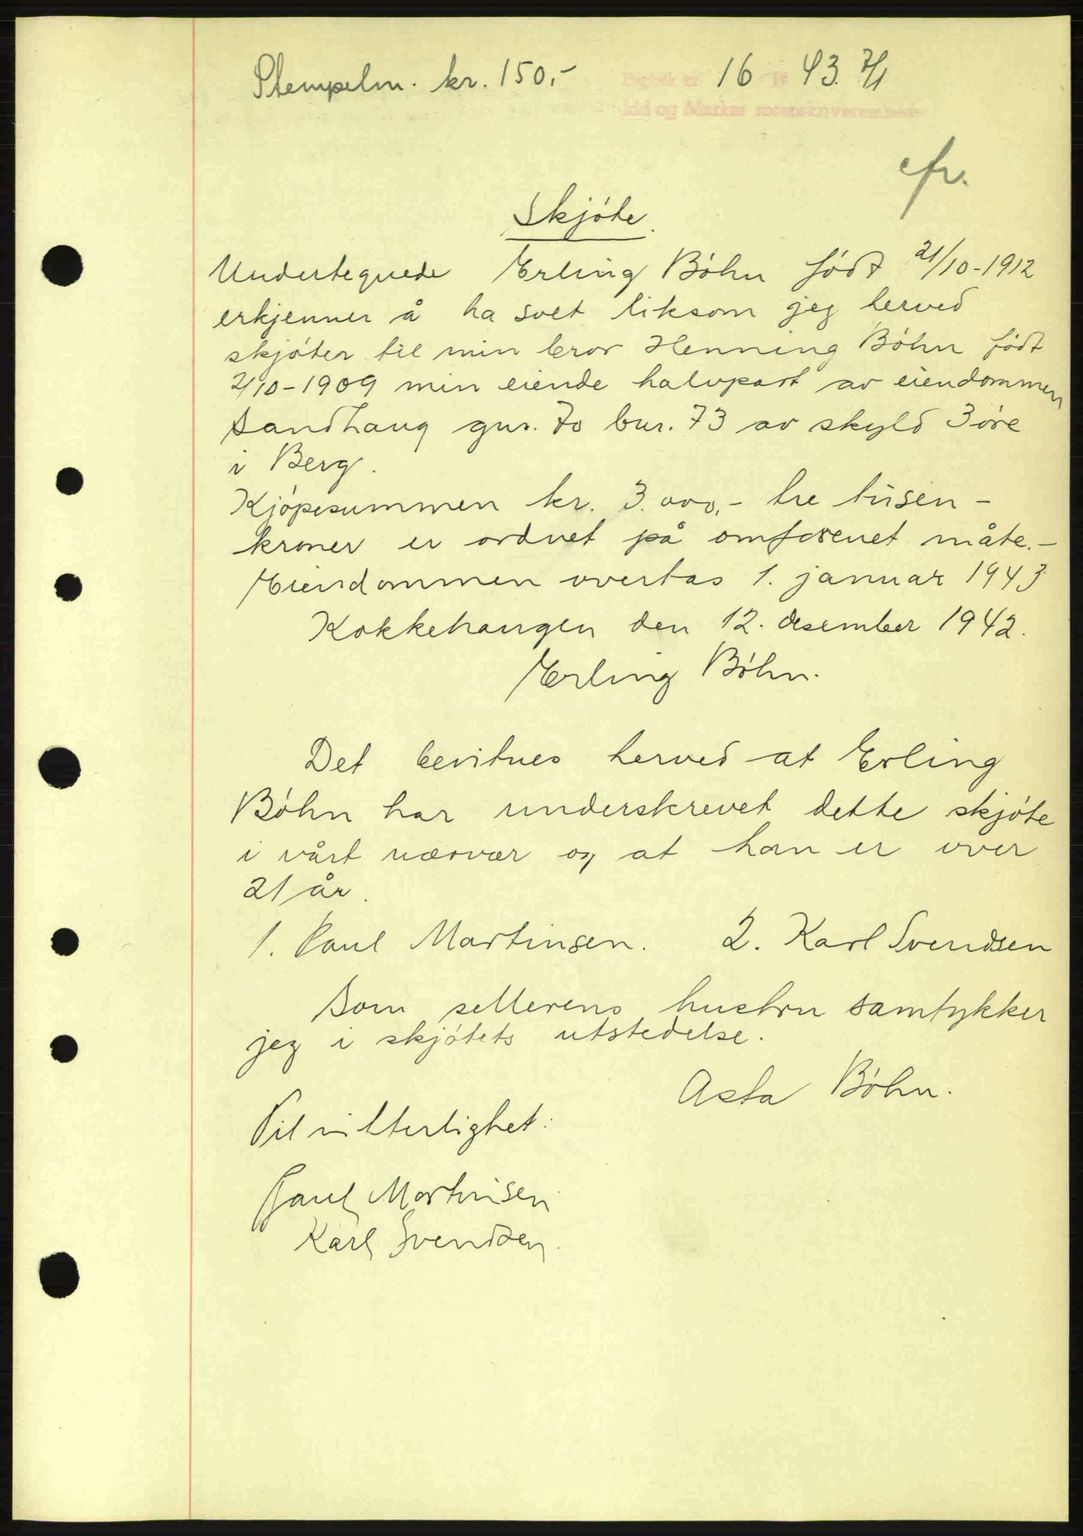 Stempelm. kr. 150,-
Dagbok nr. 16 19 43. 7/1
Idd og Marker sorenskriverembede
efr.
Skjóte.
Undertegnede Erling Bóhn födt 21/10-1912
erkjenner å ha solt liksom jeg herved
skjóter til min bror Henning Bóhn födt
2/10-1909 min eiende halvpart av eiendommen
Sandhaug gnr. 70 bnr. 73 av skyld 3 öre
i Berg.
Kjópesummen kr. 3.000,- tre tusen -
kroner er ordnet på omforenet måte.-
Eiendommen overtas 1. januar 1943
Kokkehaugen den 12. desember 1942.
Erling Bóhn.
Det bevitnes herved at Erling
Bóhn har underskrevet dette skjóte
i vårt nærvær og at han er over
21 år.
1. Paul Martinsen. 2. Karl Svendsen
Som sellerens hustru samtykker
jeg i skjótets utstedelse.
Asta Bóhn.
Til vitterlighet:
Paul Martinsen
Karl Svendsen.